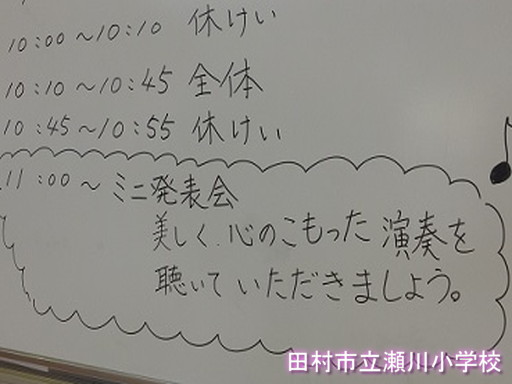 10:00～10:10 休けい
10:10～10:45 全体
10:45～10:55 休けい
11:00～ミニ発表会
美しく、心のこもった演奏を
聴いていただきましょう。
田村市立瀬川小学校